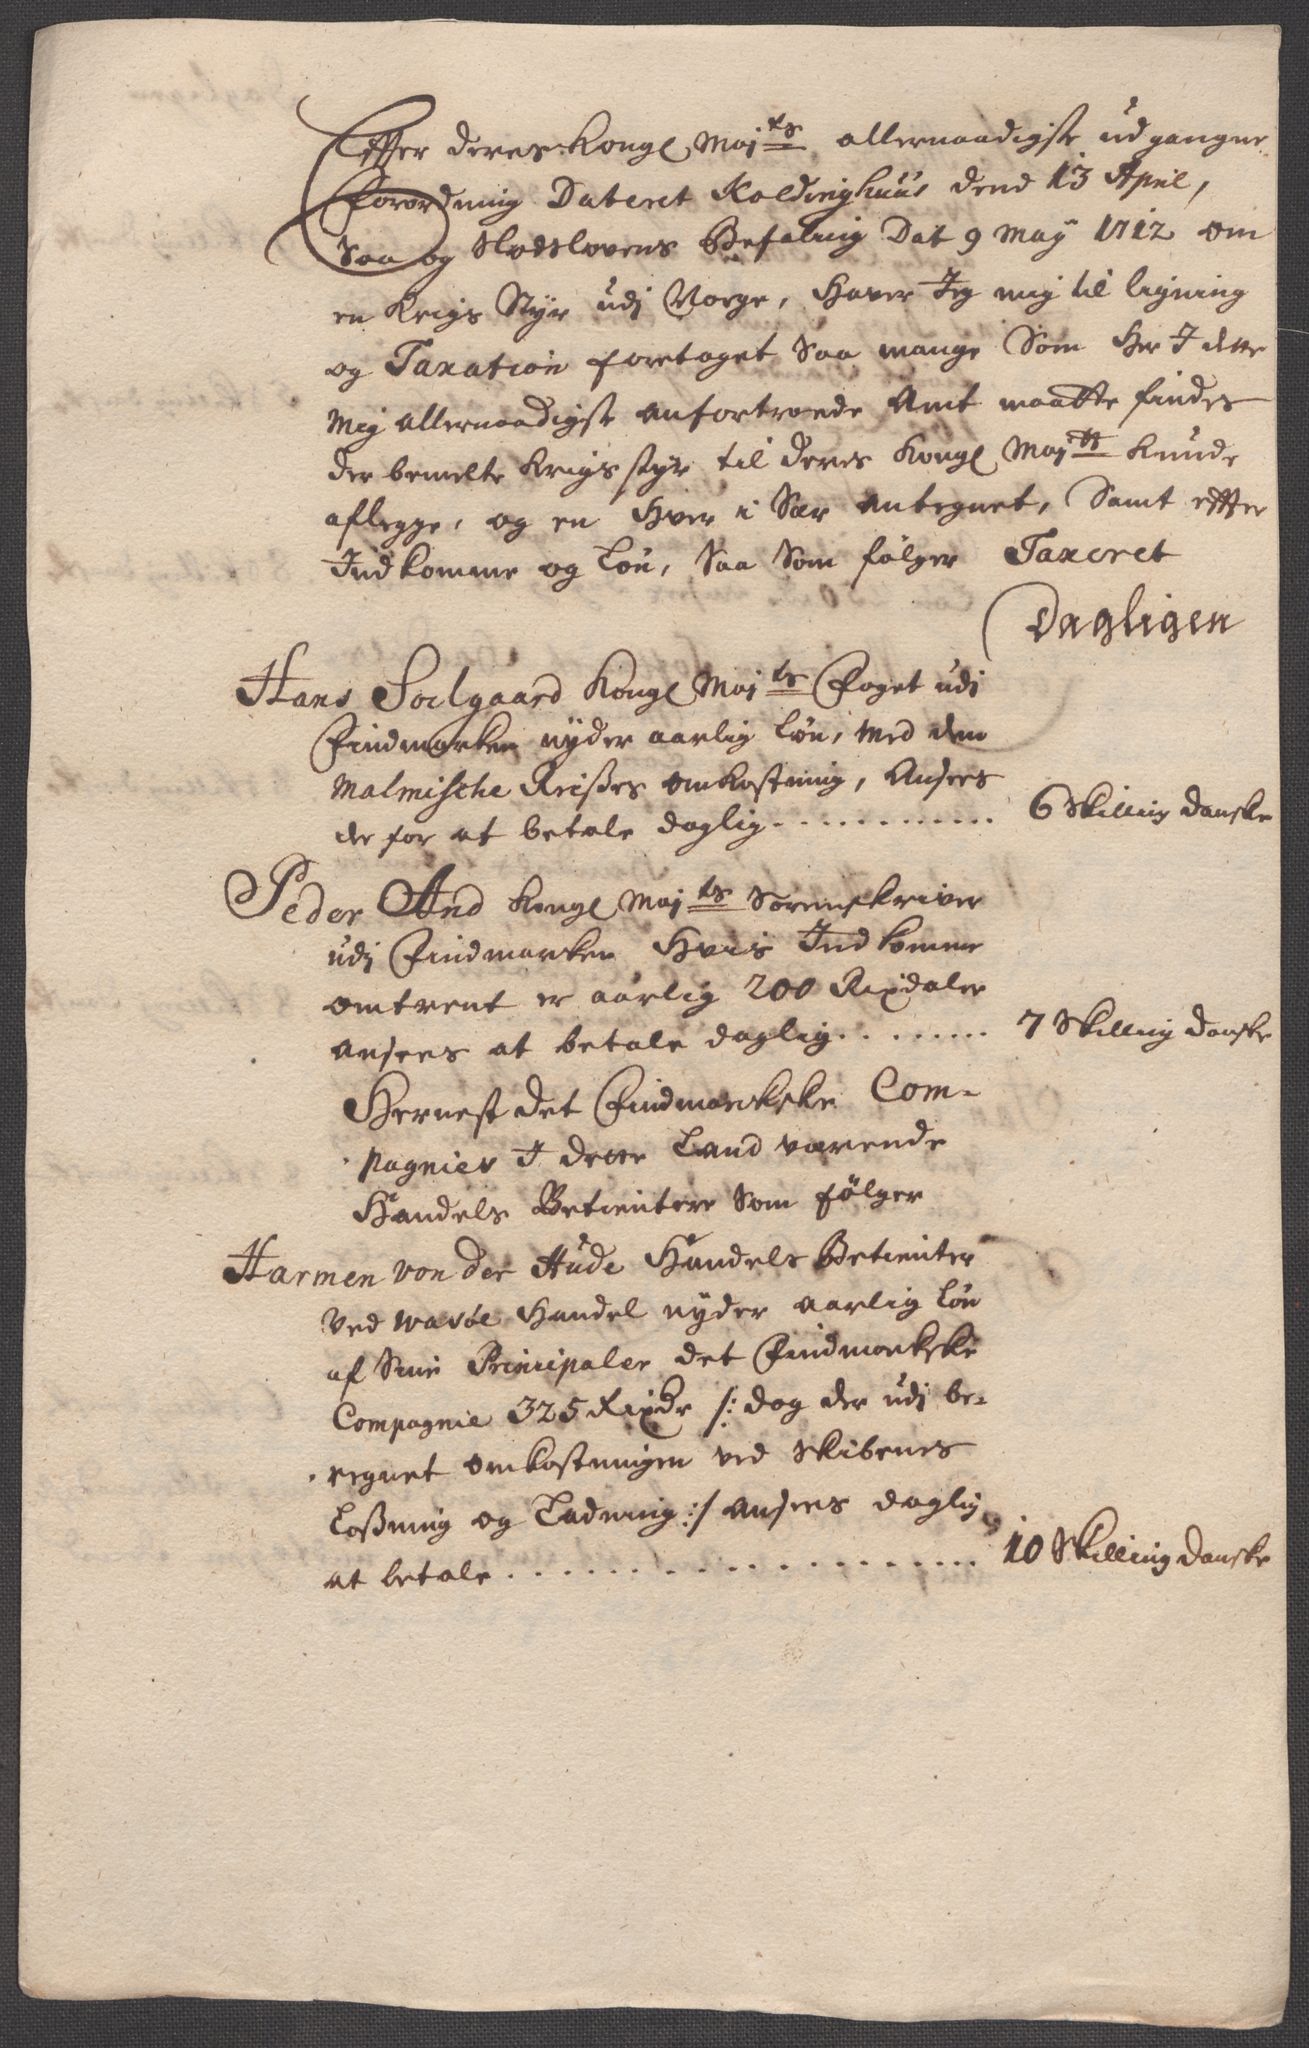 Effter deres Kongl Maj:ts allernaadigste udgangne
Forordning Dateret Koldinghuus dend 13 April,
Saa og Slodslovens Befaling Dat 9 Maÿ 1712 om
en Krigs Styr udj Norge, Haver Jeg mig til ligning
og Taxation foretaget Saa mange Som Her I dette
Mig allernaadigst anfortroede Amt maatte findes
der bemelte Krigs styr til deres Kongl Maj:tt kunde
aflegge, og en Hver i Sær antegnet, Samt effter
Indkomme og Løn, Saa Som følger Taxeret
Dagligen
Hans Soelgaard Kongl Maj:ts Foget udj
Findmarken nÿder aarlig Løn, Med den
Malmische Reises omkostning, Ansees
der for at betale daglig . . . . . . . . . . . 6 Skilling danske
Peder And Kongl Maj:ts Sorenskriver
udj Findmarken Hvis Indkomme
omtrent er aarlig 200 Rixdaler
ansees at betale daglig . . . . . . . . 7 Skilling danske
Hernest det Findmarkske Com-
pagnies I dette Land værende
Handels Betientere Som følger
Harmen von der Hude Handels Betienter
Ved Wasøe Handel nÿder aarlig Løn
af Sine Principaler det Findmarkske
Compagnie 325 Rixdr /: dog der udj be-
regnet omkostningen ved Skibenes
Losning og Ladning :/ ansees daglig
at betale . . . . . . . . . . . . . . . . . 10 Skilling danske